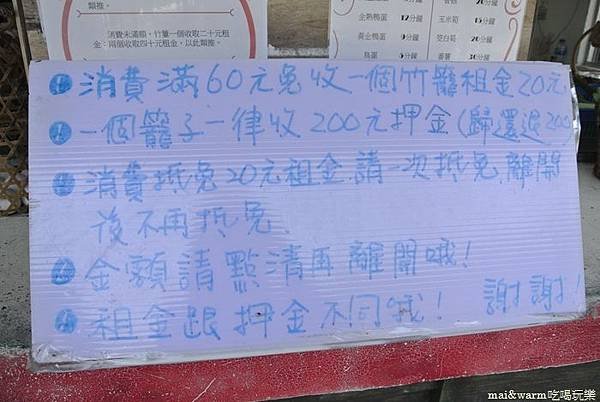 消費未滿額,竹簍一個收取二十元租
金;兩個收取四十元租金,以此類推。
金熱鴨蛋 12分鐘
黃金鴨蛋 9分鐘
鳥蛋
玉米箱 15分鐘
筊白筍 20分鐘
消費滿60元免收一個竹籠租金20元
一個籠子一律收200元押金(歸還退200)
消費抵免20元租金.請一次抵免.離開
後不再抵免.
金額請點清再離開哦!
租金跟押金不同哦! 謝謝!
mai&warm吃喝玩樂